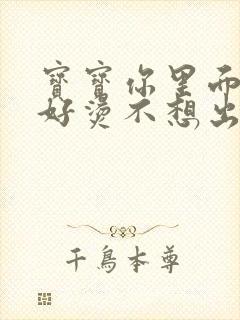 寶寶你里面
好燙不想出
千鳥本尊